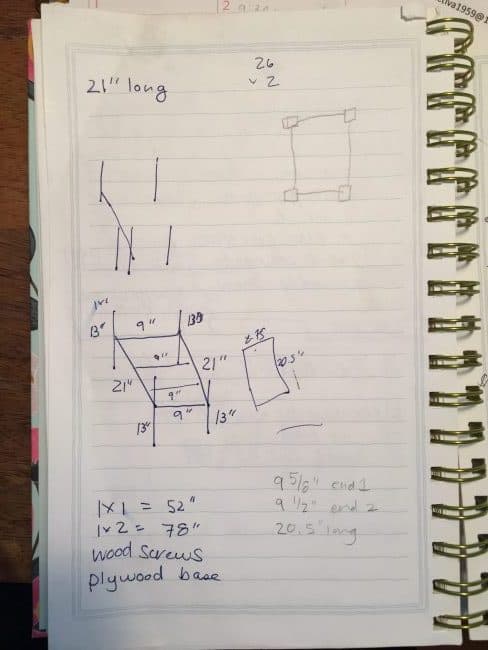 26
21" long
x 2
1x1
13"
9"
13"
9"
21"
21"
9"
9"
13"
13"
20.5"
9 5/8" end 1
9 1/2" end 2
20.5" long
1x1 = 52"
1x2 = 78"
wood screws
plywood base